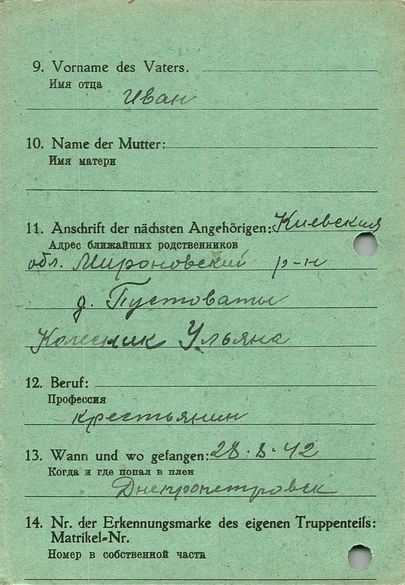 9. Vorname des Vaters.
Имя отца
Иван
10. Name der Mutter:
Имя матери
11. Anschrift der nächsten Angehörigen: Киевская
Адрес ближайших родственников
обл. Мироновский р-н
д. Пустоваты
Колесник Ульяна
12. Beruf:
Профессия
крестьянин
13. Wann und wo gefangen: 28.8.42
Когда и где попал в плен
Днепропетровск
14. Nr. der Erkennungsmarke des eigenen Truppenteils:
Matrikel-Nr.
Номер в собственной части